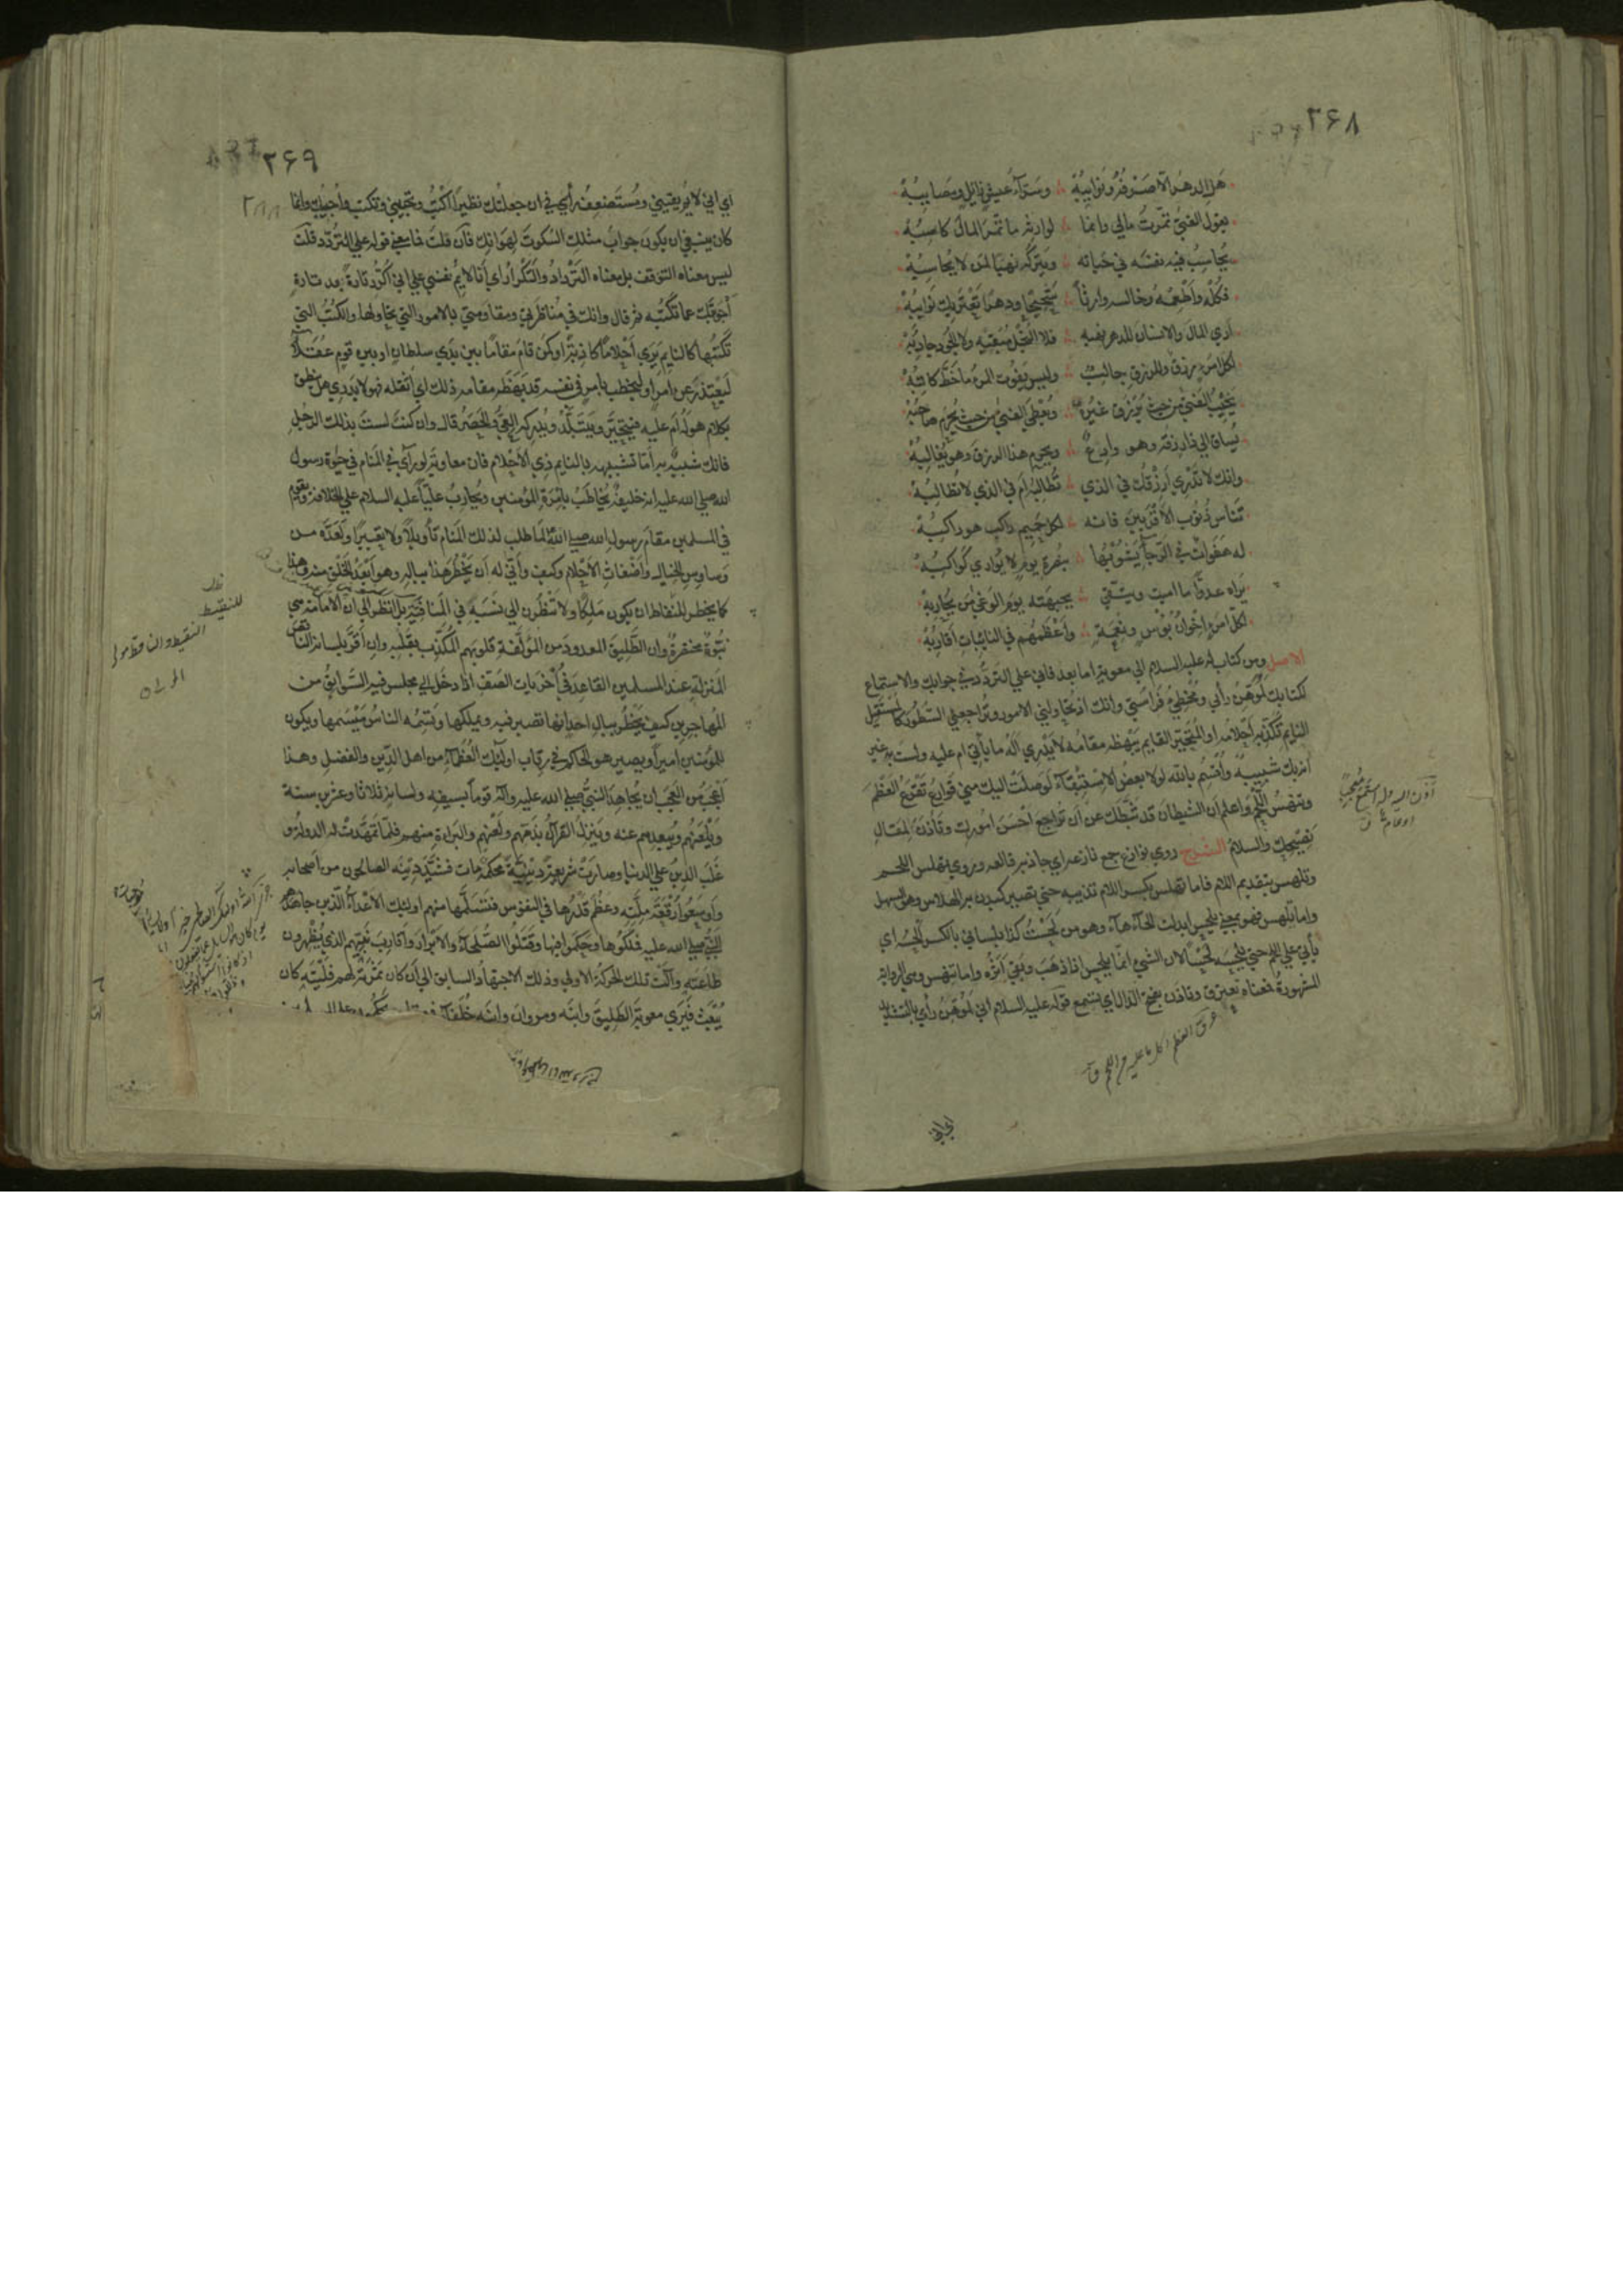 ۳۶۸
هل الدهر الا صرفه ونوائبه وسرّاء عيش زائل ومصائبه
يقول الغني ثمرت مالي وانما لوارثه ما ثمّر المال كاسبه
يحاسب فيه نفسه في حياته ويتركه نهبا لمن لا يحاسبه
فكله واطعمه وخالسه وارثاً شحيحا ودهرا تعتريك نوائبه
اري المال والانسان للدهر نهبة فلا البخل مبقيه ولا الجود
لكل امرء رزق وللرزق جالب وليس يفوت المرء ما خط كاتبه
يخيب الفتي من حيث يرزق غيره ويعطي الفتي من حيث يحرم صاحبه
يساق الي ذا رزقه وهو وادع ويحرم هذا الرزق وهو يغالبه
وانك لا تدري ارزقك في الذي تطالبه ام في الذي لا تطالبه
تناس ذنوب الاقربين فانه لكل حميم راكب هو راكبه
له هفوات في الرخا يشوبها بنصرة يوم لا يواري كواكبه
يراه عدوّا ما امنت ويتقي بجبهته يوم الوغي من يحاربه
لكل امرء اخوان بؤس ونعمة واعظمهم في النائبات اقاربه
الاصل ومن كتاب له عليه السلام الي معوية اما بعد فاني علي التردد في جوابك والاستماع
لكتابك لموهن رأيي ومخطئ فراستي وانك اذ تحاولني الامور وتراجعني السطور كالمستثقل
النايم تكذبه احلامه او المتحيّر القايم يبهظه مقامه لا يدري أله ما يأتي ام عليه ولست به غير
انه بك شبيه واقسم بالله لولا بعض الاستبقاء لوصلت اليك مني قوارع تقرع العظم
وتنهس اللحم واعلم ان الشيطان قد ثبّطك عن ان تراجع احسن امورك وتأذن لمقال
نصيحك والسلام الشرح روي نوازع جمع نازعة اي جاذبة قالعة وروي تهلس اللحم
وتلهس بتقديم اللام فاما تهلس بكسر اللام تذيبه حتي تصير كبدن به الهلاس وهو السل
واما تلهس فهو بمعني يلحس ابدلت الحاء هاء وهو من لحست كذا بلساني بالكسر الحسه اي
يأتي علي اللحم حتي يلحسه لحسا لان الشيء انما يلحس اذا ذهب وبقي اثره واما تنهس وهي الرواية
المشهورة فمعناه تعترق وتأذن بفتح الذال اي يستمع قوله عليه السلام اني لموهن رأيي بالتشديد
۳۶۹
اي اني لائم نفسي ومستضعف رأيي في ان جعلتك نظيرا اكتب وتجيبني وتكتب واجيبك وانما
كان ينبغي ان يكون جواب مثلك السكوت لهوانك فان قلت فما معني قوله علي التردد قلت
ليس معناه التوقف بل معناه الترداد والتكرار اي انا لائم نفسي علي اني اكرر تارة بعد تارة
اجوبتك عما تكتبه ثم قال وانك في مناظرتي ومقاومتي بالامور التي تحاولها والكتب التي
تكتبها كالنايم يري احلاما كاذبة او كمن قام مقاما بين يدي سلطان او بين قوم عقلاء
ليعتذر عن امر او ليخطب بامر في نفسه قد بهظه مقامه ذلك اي اثقله فهو لا يدري هل ينطق
بكلام هو له ام عليه فيتحيّر ويتبلّد ويدركه العيّ والحصر قال وان كنت لست بذلك الرجل
فانك شبيه به اما تشبيهه بالنايم ذي الاحلام فان معاوية لو رأي في المنام في حيوة رسول
الله صلي الله عليه انه خليفة يخاطب بامرة المؤمنين ويحارب عليّا عليه السلام علي الخلافة ويقوم
في المسلمين مقام رسول الله صلي الله لما طلب لذلك المنام تأويلا ولا تعبيرا ولعدّه من
وساوس الخيال واضغاث الاحلام وكيف وأنّي له أن يخطر هذا بباله وهو ابعد الخلق منه وهذا
كما يخطر للنفاط ان يكون ملكا ولا تنظرن الي نسبه في المنافيّة بل انظر الي ان الامامة هي
نبوّة مختصرة وان الطليق المعدود من المؤلفة قلوبهم المكذب بقلبه وان اقرّ بلسانه الناقص
المنزلة عند المسلمين القاعد في أخريات الصف اذا دخل الي مجلس فيه السوابق من
المهاجرين كيف يخطر ببال احد انها تصير فيه ويملكها ويسمه الناس ميسمها ويكون
للمؤمنين اميرا ويصير هو الحاكم في رقاب اولئك العظماء من اهل الدين والفضل وهذا
اعجب من العجب ان يجاهد النبي صلي الله عليه وآله قوما بسيفه ولسانه ثلاثا وعشرين سنة
ويلعنهم ويبعدهم عنه وينزل القرآن بذمّهم ولعنهم والبراءة منهم فلما تمهّدت له الدولة و
غلب الدين علي الدنيا وصارت شريعة دينية محكمة مات فشيّد دينه الصالحون من اصحابه
واوسعوا رقعة ملّته وعظم قدرها في النفوس فتسلّمها منهم اولئك الاعداء الذين جاهدهم
النبي صلي الله عليه فملكوها وحكموا فيها وقتلوا الصلحاء والابرار واقارب نبيّهم الذي يظهرون
طاعته وآلت تلك الحركة الاولي وذلك الاجتهاد السابق الي ان كان ثمرته لهم فليته كان
يبعث فيري معوية الطليق وابنه ومروان وابنه خلفاء في مقامه